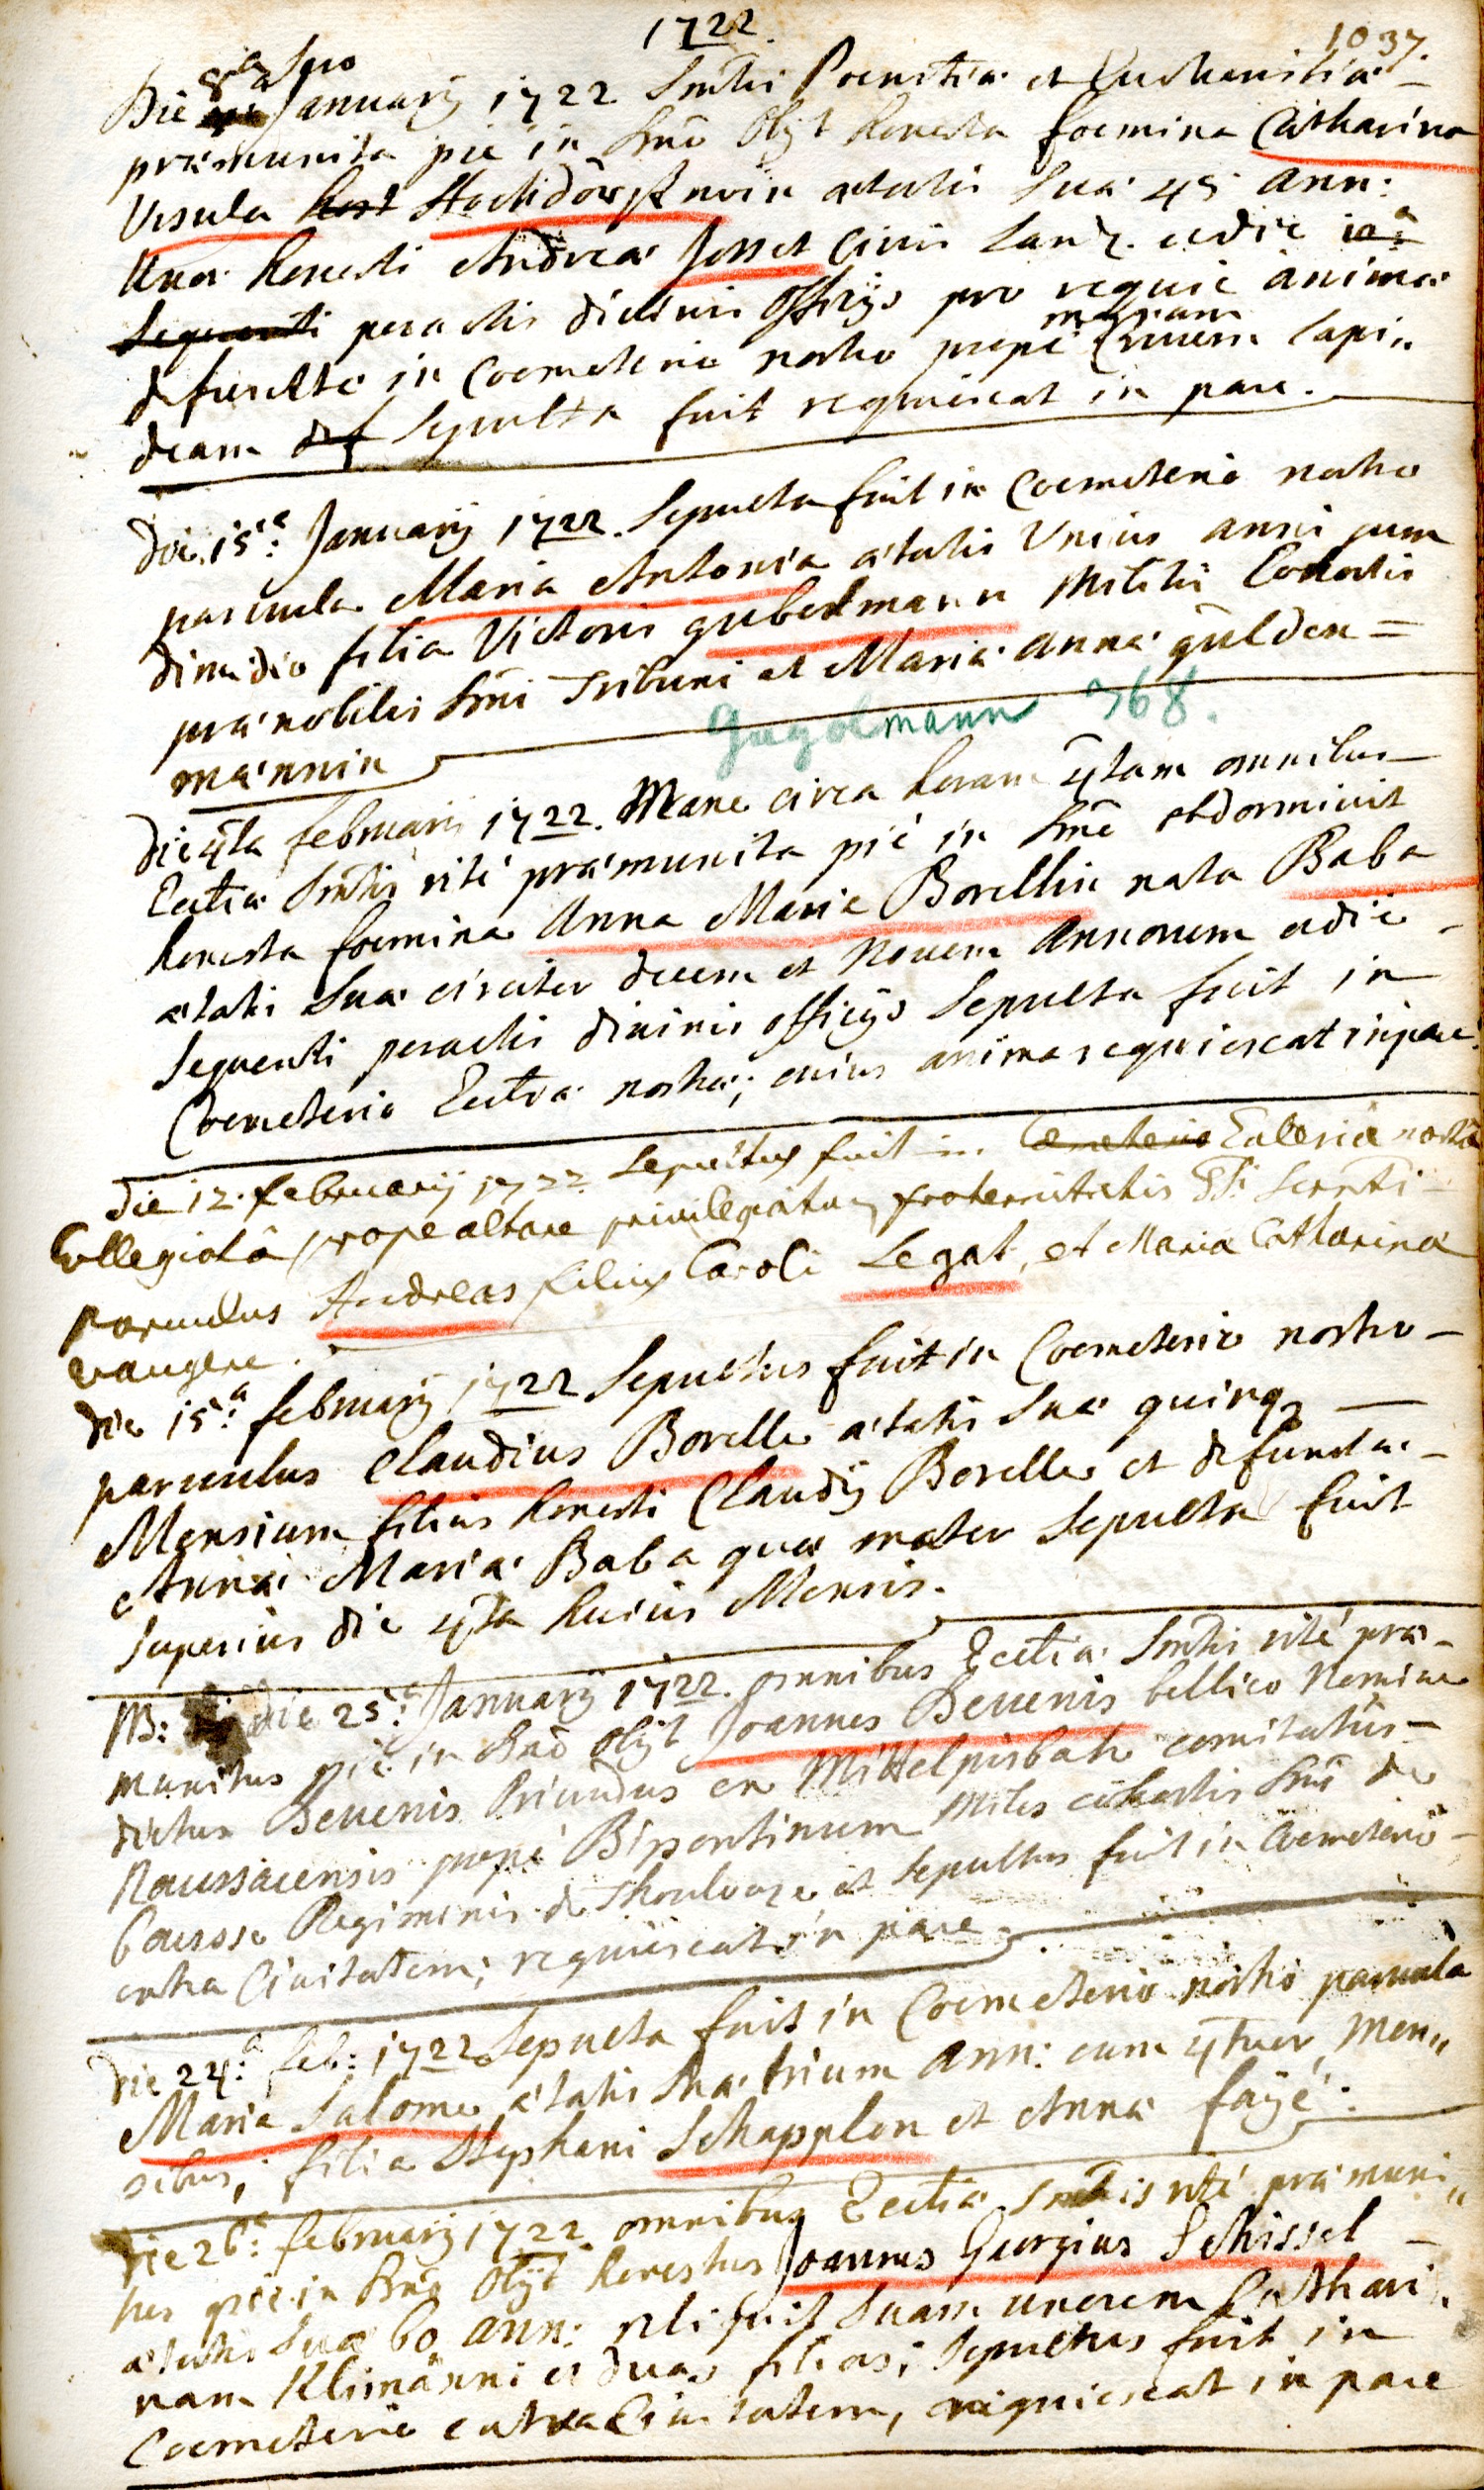 1722.
1037.
8va
Die Januarÿ 1722 Smtis Poenitia et Eucharistia
præmunita pie in Dno Obÿt honesta foemina Catharina
Ursula Hochdörfferin ætatis Suæ 45 ann:
Uxor honesti Andreæ Josset Civis Land: et die 10a:
Sequenti peractis divinis Offitÿs pro requie animæ
magnam
defunctæ in Coemeterio nostro prope Crucem lapi„
deam def Sepulta fuit requiescat in pace.
die 15ta: Januarÿ 1722. Sepulta fuit in Coemeterio nostro
parvula Maria Antonia ætatis Unius anni cum
dimidio filia Victoris gubelmann Militis Cohortis
prænobilis Dni Tribuni et Mariæ annæ gulden=
männin
Gugolmann 368.
die 4ta februarii 1722. Mane circa horam 4tam omnibus
Eccliæ Smtis rité præmunita pié in Dno obdormivit
honesta foemina Anna Maria Borellin nata Baba
ætatis Suæ circiter decem et Novem Annorum et die
Sequenti peractis divinis officÿs Sepulta fuit in
Coemeterio Eccliæ nostræ; cuius anima requiescat in pace.
die 12. februarij 1722 Sepultus fuit in Cœmeterio Eclesia nostra
Collegiatâ prope altare privilegiatum fraternitatis SSi: Scrmti
Parvulus Andreas filius Caroli Legat, et Maria Catharina
die 15:a februarÿ 1722 Sepultus fuit in Coemeterio nostro
parvulus Claudius Borelle ætatis Suæ quinq3
Mensium filius honesti Claudÿ Borelle et defunctæ
Annæ Mariæ Baba quæ mater Sepulta fuit
Superius die 4ta huius Mensis.
NB: die 25:a Januarÿ 1722. omnibus Eccliæ Smtis rité præ-
munitus pié in Dnō Obÿt Joannes Bevenis bellico Nomine
dictus Bevenis Oriundus ex Mittelpisbach comitatûs
Naussaiensis prope Bipontinum Miles cohortis Dni de
Causse Regiminis de Thoulouze et Sepultus fuit in Coemeterio
extra Civitatem; requiescat in pace
die 24:a feb: 1722 Sepulta fuit in Coemeterio nostro parvula
Maria Salome ætatis Suæ trium Ann: cum 4tuor Men„
sibus; filia Stephani Schapplon et Annæ fayé:
die 26:a februarÿ 1722. omnibus Eccliæ Smtis rité præmuni„
tus pié in Dno Obÿt honestus Joannes Georgius Schissel
ætatis Suæ 60 ann: reliquit Suam uxorem Cathari„
nam Klimänni et duas filias; Sepultus fuit in
Coemeterio extra Civitatem, requiescat in pace